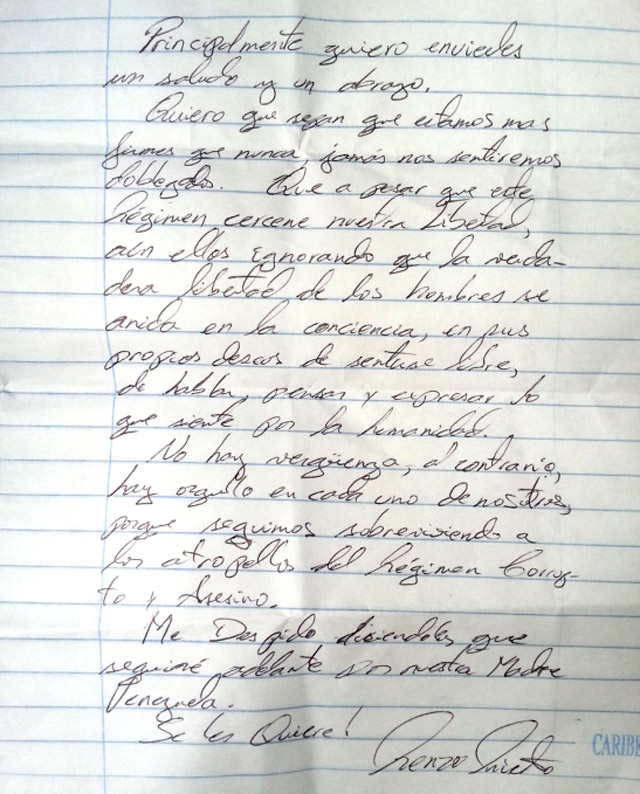 Principalmente quiero enviarles
un saludo y un abrazo.
Quiero que sepan que estamos mas
firmes que nunca, jamás nos sentiremos
doblegados. Que a pesar que este
Régimen cercene nuestra Libertad,
aún ellos ignorando que la verda-
dera libertad de los hombres se
anida en la conciencia, en sus
propios deseos de sentirse libre,
de hablar, pensar y expresar lo
que siente por la humanidad.
No hay vergüenza, al contrario,
hay orgullo en cada uno de nosotros,
porque seguimos sobreviviendo a
los atropellos del Régimen Corrup-
to y Asesino.
Me Despido diciendoles, que
seguiré adelante por nuestra Madre
Venezuela.
Se les Quiere!
Renzo Prieto
CARIBE